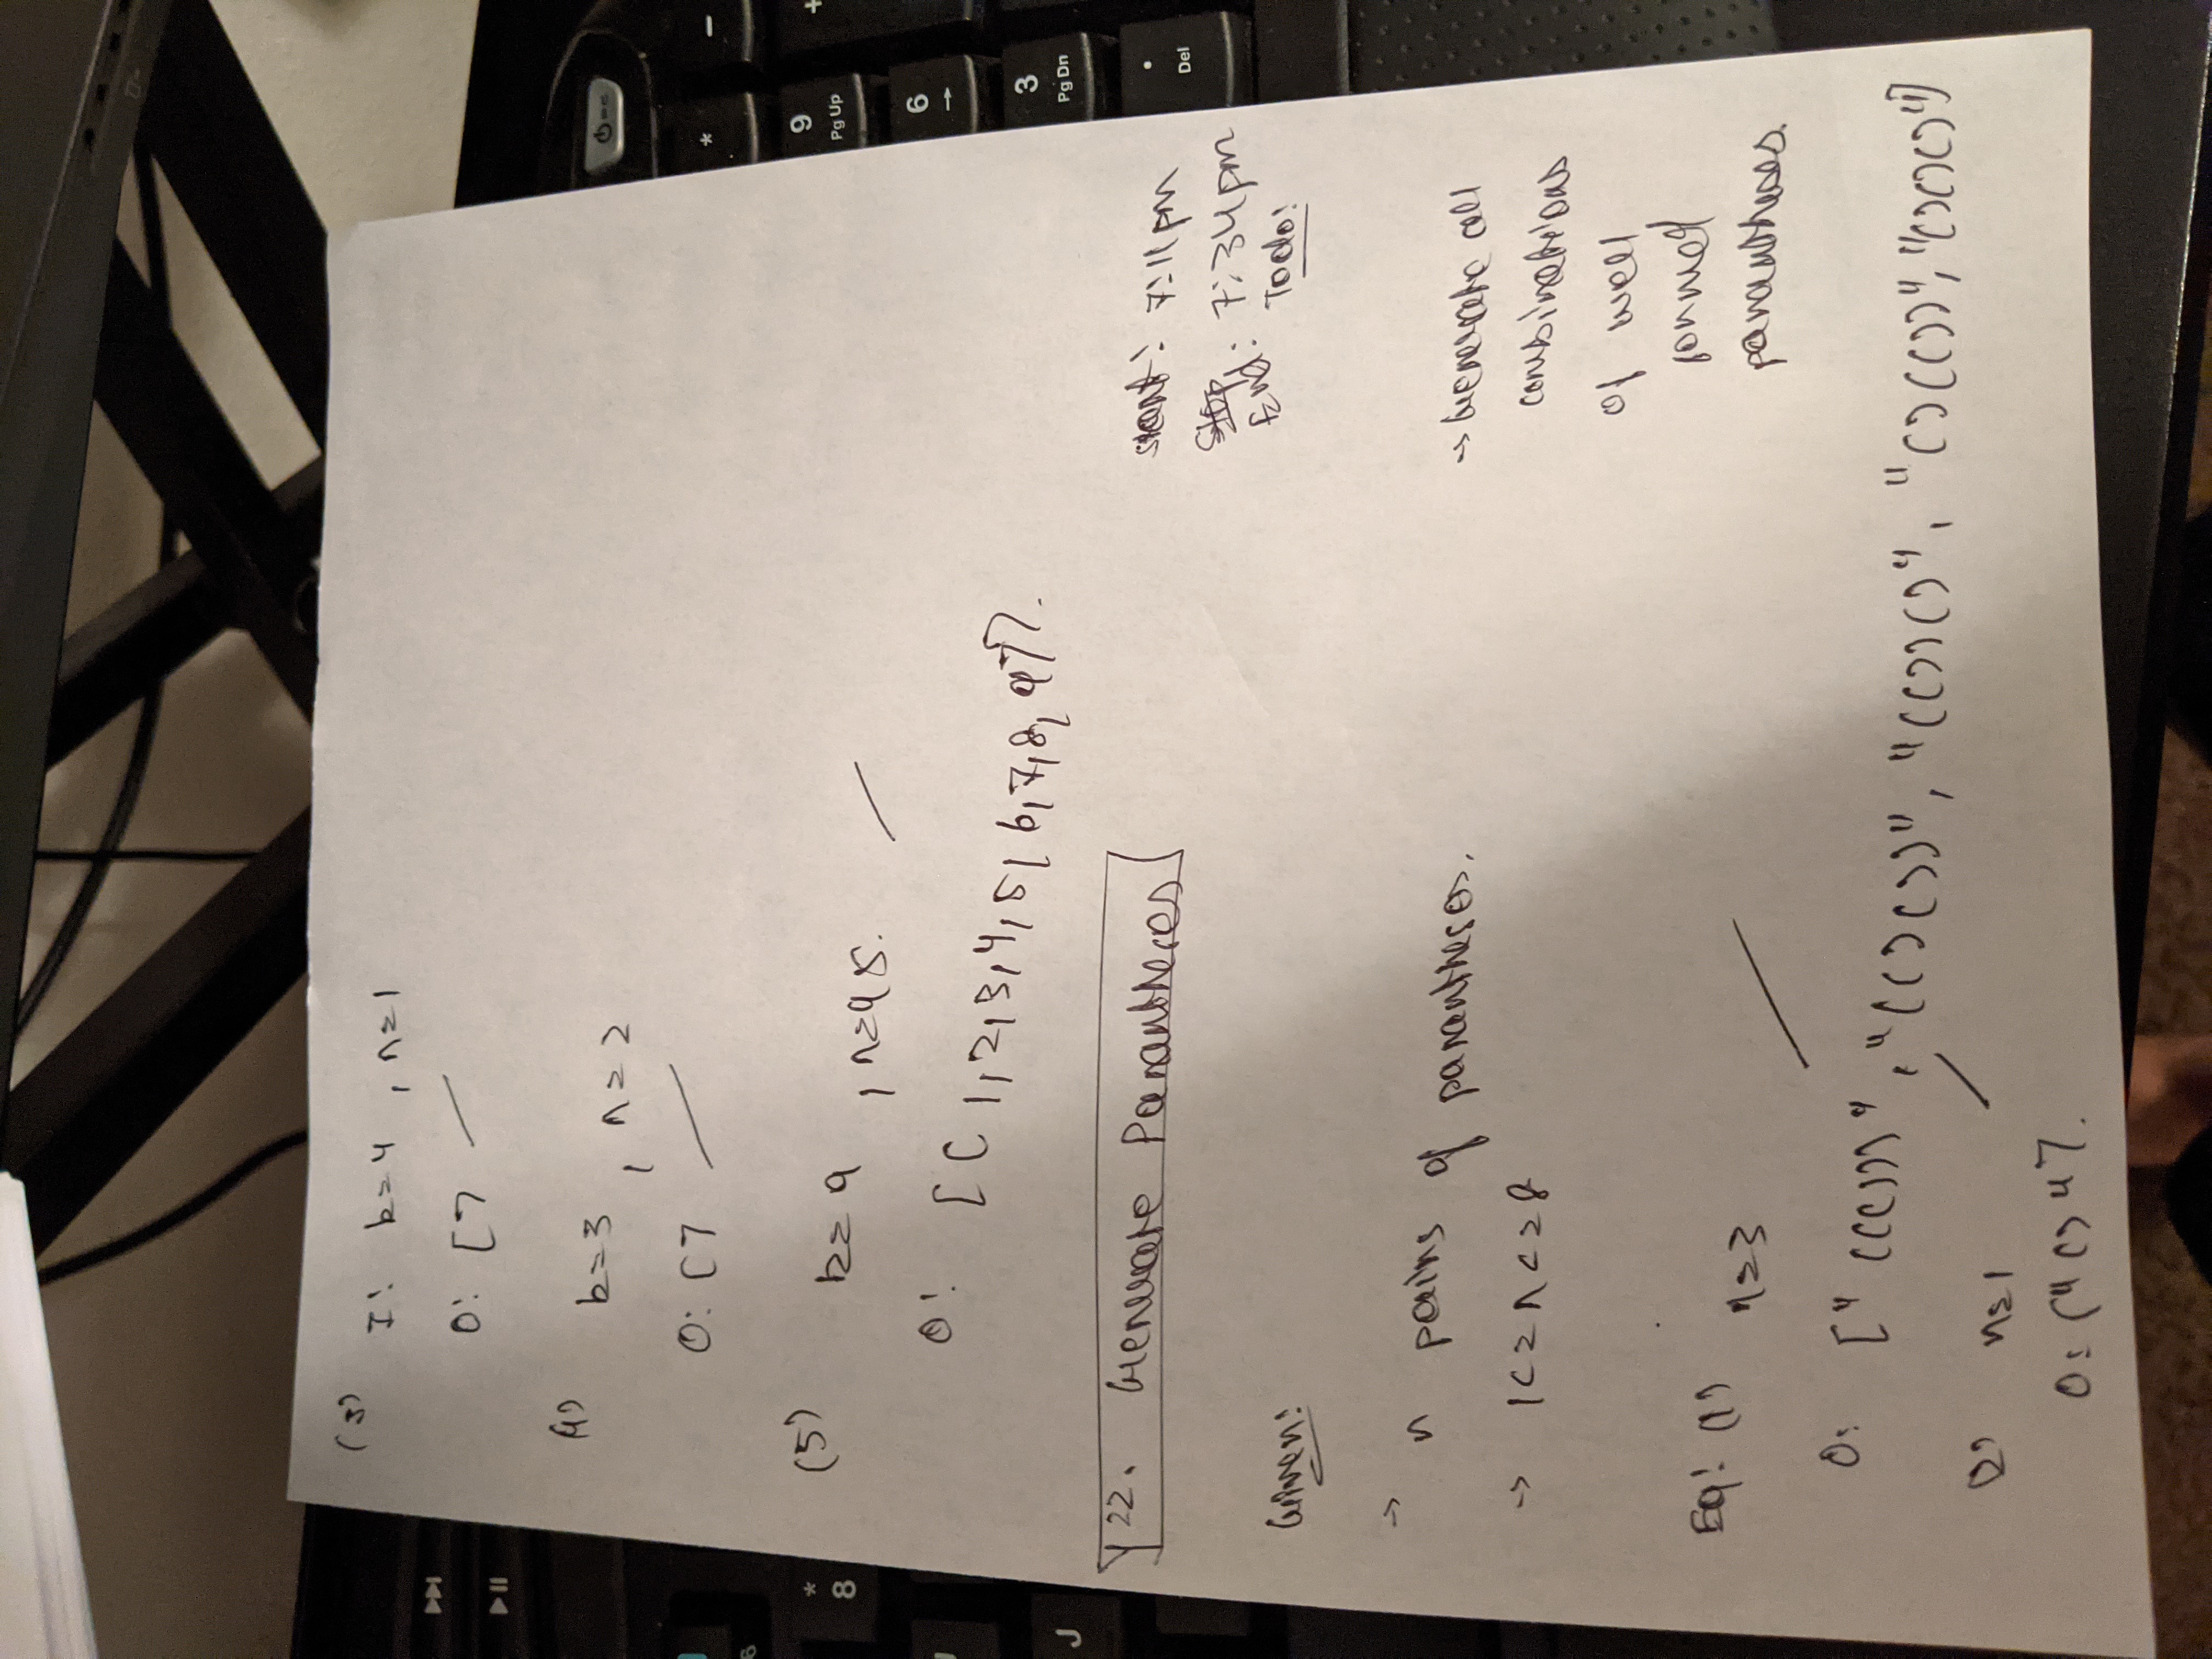 (3)
I: k=4, n=1
O: []
(4)
k=3, n=2
O: []
(5)
k=9, n=45.
O: [[1,2,3,4,5,6,7,8,9]].
22. Generate Parantheses
Start: 7:11pm
Stop
End: 7:34pm
Given:
Todo:
→ n pairs of parantheses.
→ 1<=n<=8
→ Generate all
combinations
of well
formed
parantheses.
Eg: (1) n=3
O: ["((()))", "(()())", "(())()", "()(())", "()()()"]
(2) n=1
O: ["()"].
*
-
6
*
8
9
Pg Up
+
6
→
J
3
Pg Dn
.
Del